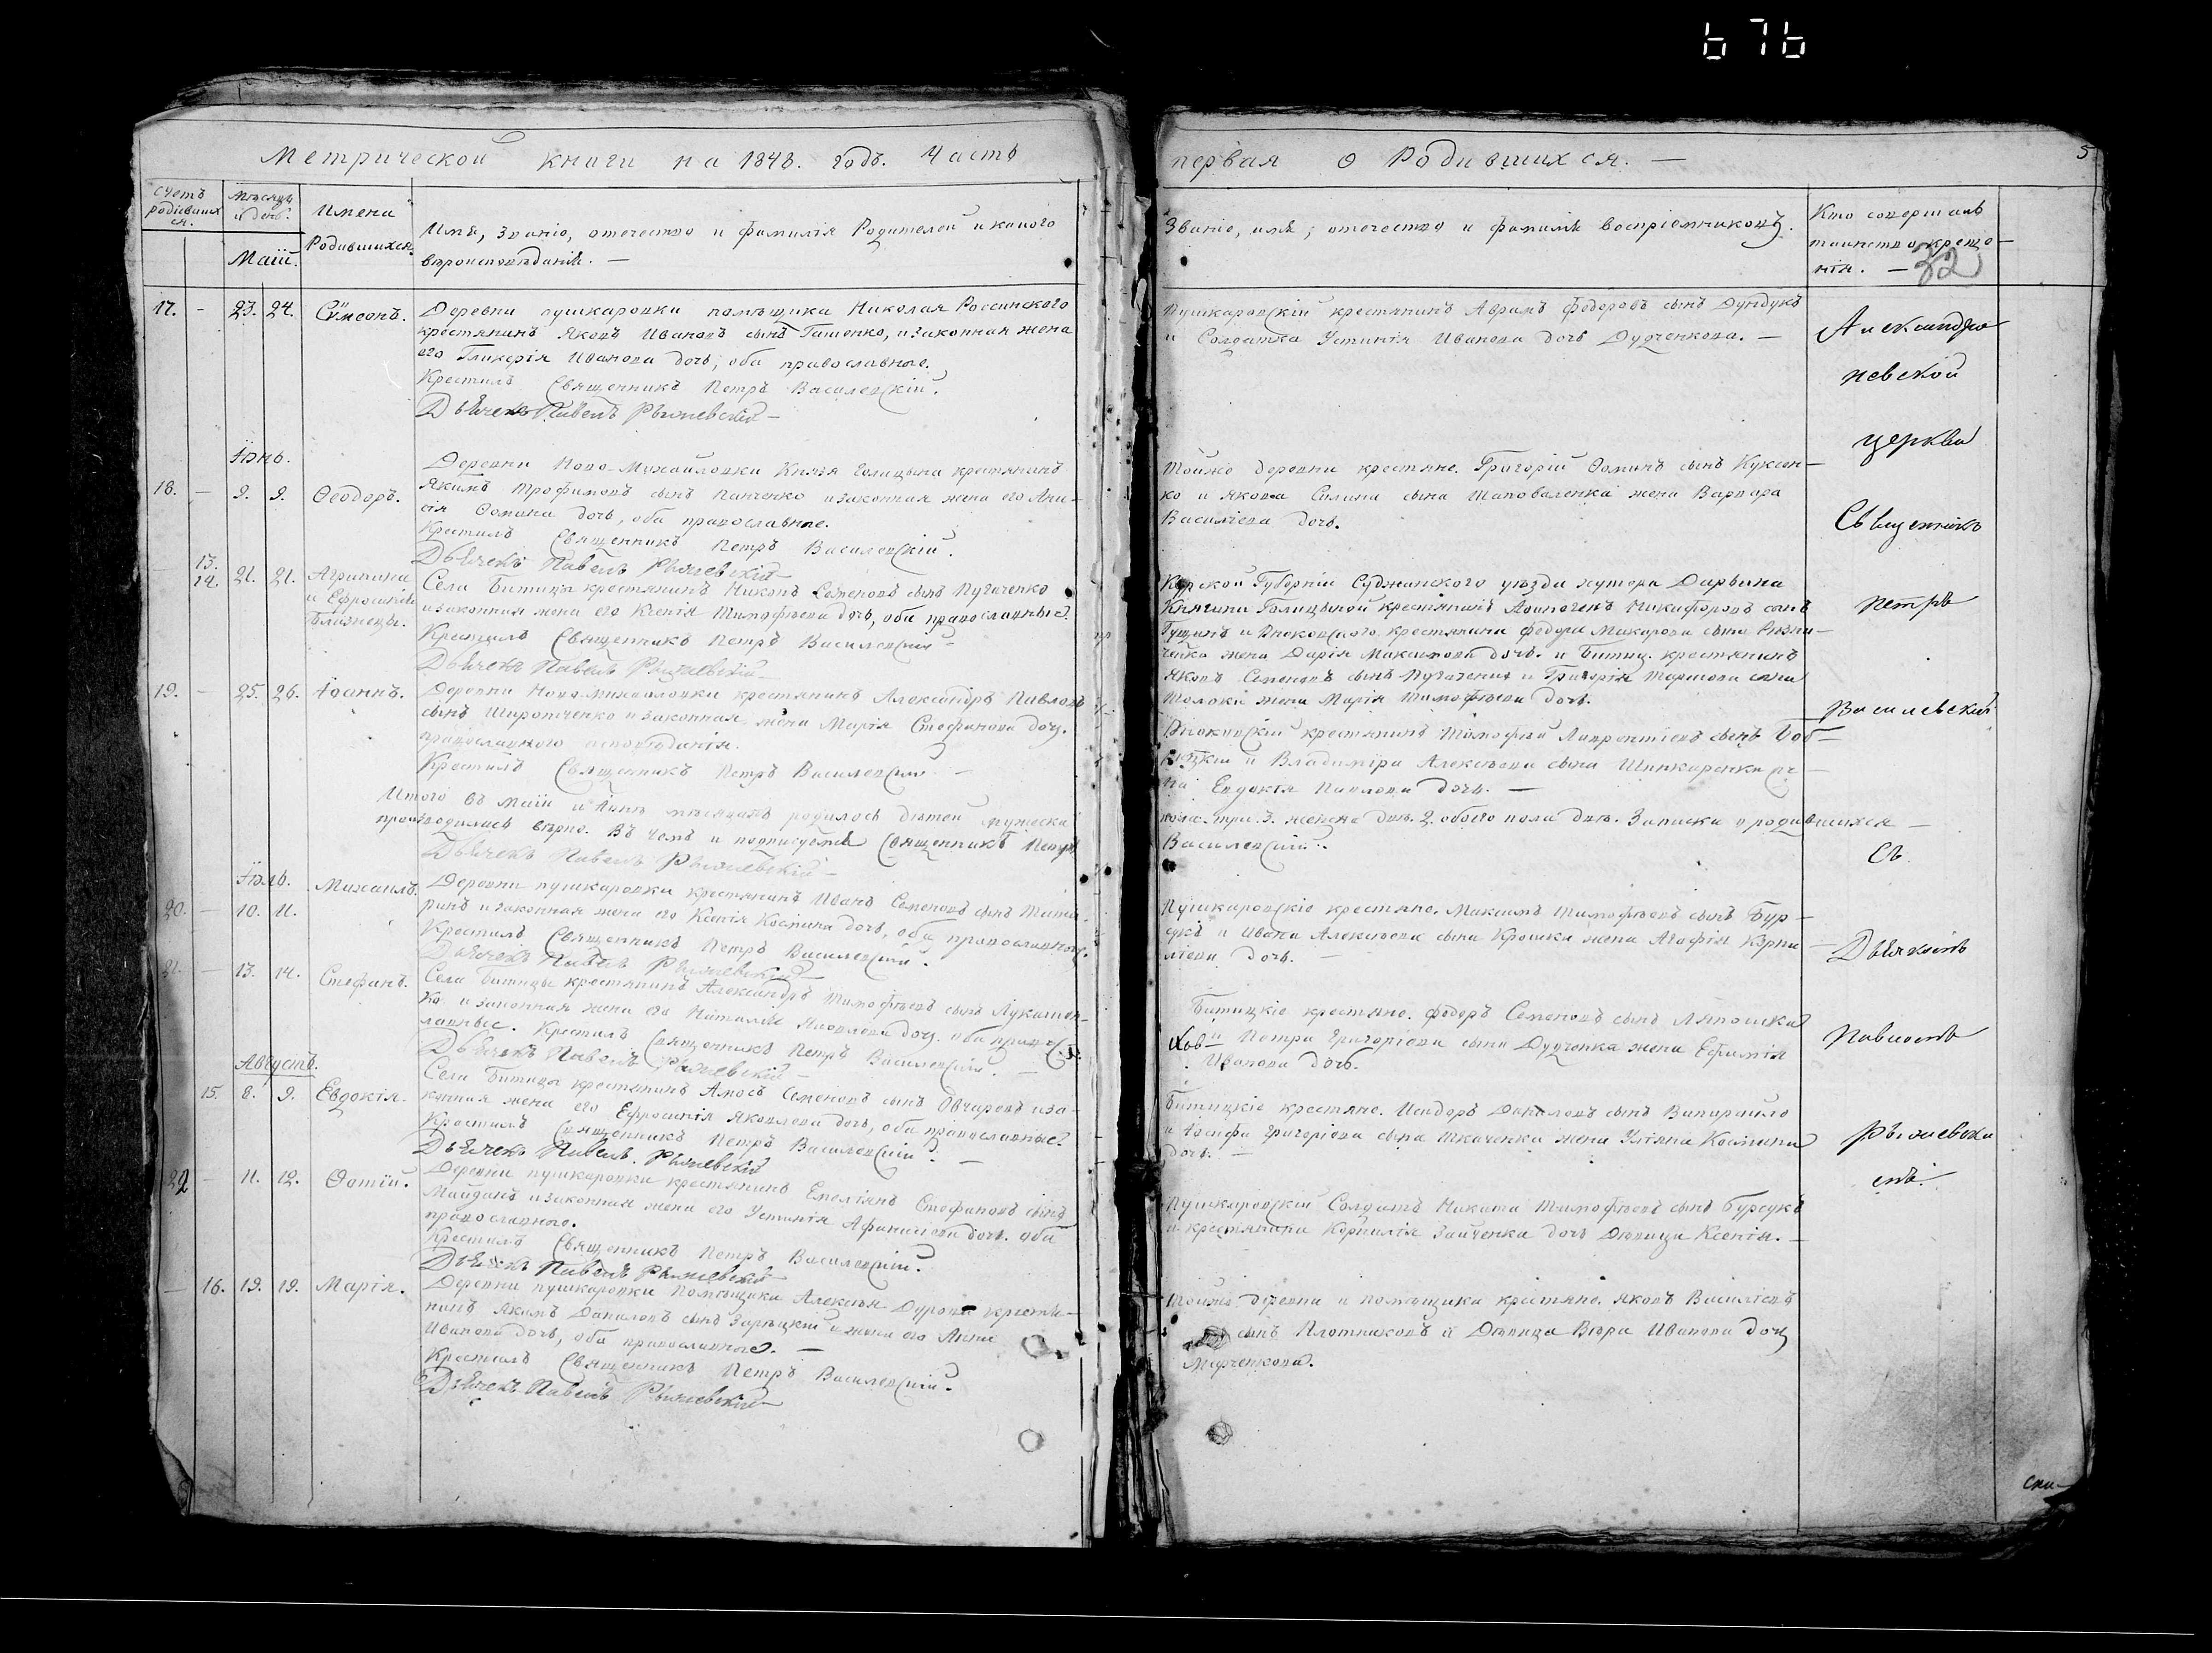 676
Метрической книги на 1848. годъ. Часть
счетъ родившихся.
Мѣсяцъ и день.
Маій.
Имена Родившихся
Имя, званіе, отечество и фамилія Родителей и какого
вѣроисповѣданія. —
17. - 23. 24. Сѵмеонъ. Деревни пушкаровки помѣщика Николая Россинского
крестьянинъ Яковъ Ивановъ сынъ Гатенко, и законная жена
его Гликерія Иванова дочь, оба православные.
Крестилъ Священникъ Петръ Василевскій.
Дьячекъ Павелъ Рыжевскій
Іюнь.
Деревни Ново-Михайловки Князя Голицына крестьянинъ
18. — 9. 9. Ѳеодоръ. Якимъ Трофимовъ сынъ Панченко и законная жена его Ани-
сія Ѳомина дочь, оба православные.
Крестилъ Священникъ Петръ Василевскій.
Дьячекъ Павелъ Рыжевскій
13. 14. 21. 21. Агрипина и Ефросинія Близнецы. Села Битицы крестьянинъ Никонъ Семеновъ сынъ Пугаченко
и законная жена его Ксенія Тимофѣева дочь, оба православные.
Крестилъ Священникъ Петръ Василевскій
Дьячекъ Павелъ Рыжевскій
19. - 25. 26. Іоаннъ. Деревни Новомихайловки крестьянинъ Александръ Павловъ
сынъ и законная жена Марія Стефанова дочь.
православного исповѣданія.
Крестилъ Священникъ Петръ Василевскій —
Итого въ Маіи и Іюнѣ мѣсяцахъ родилось дѣтей мужеска
производились вѣрно. Въ чемъ и подписуемся Священникъ Петръ
Дьячекъ Павелъ Рыжевскій
Іюль.
20. — 10. 11. Михаилъ. Деревни пушкаровки крестьянинъ Иванъ Семеновъ сынъ Тата-
ринъ и законная жена его Ксенія Космина дочь, оба православные.
Крестилъ Священникъ Петръ Василевскій.
Дьячекъ Павелъ Рыжевскій
21. — 13. 14. Стефанъ. Села Битицы крестьянинъ Александръ Тимофѣевъ сынъ Лукашен-
ко и законная жена его Наталія Яковлева дочь. оба правос-
лавные. Крестилъ Священникъ Петръ Василевскій. —
Дьячекъ Павелъ Рыжевскій
Августъ.
15. 8. 9. Евдокія. Села Битицы крестьянинъ Амосъ Семеновъ сынъ Овчаровъ и за-
конная жена его Ефросинія Яковлева дочь, оба православные
Крестилъ Священникъ Петръ Василевскій. —
Дьячекъ Павелъ Рыжевскій
22 — 11. 12. Ѳотій. Деревни пушкаровки крестьянинъ Емеліянъ Стефановъ сынъ
Майданъ и законная жена его Устинія Афанасіева дочь. оба
православные.
Крестилъ Священникъ Петръ Василевскій.
Дьячекъ Павелъ Рыжевскій
— 16. 19. 19. Марія. Деревни пушкаровки помѣщика Алексѣя Дурова крестья-
нинъ Якимъ Даниловъ сынъ Зарѣцкій и жена его Анна
Иванова дочь, оба православные. —
Крестилъ Священникъ Петръ Василевскій.
Дьячекъ Павелъ Рыжевскій
первая о Родившихся. —
5
Званіе, имя, отечество и фамилія воспріемниковъ.
Кто совершалъ
таинство креще-
нія. —
32
Пушкаровскій крестьянинъ Аврамъ Федоровъ сынъ Дундукъ
и Солдатка Устинія Иванова дочь Дудченкова. —
Тойже деревни крестьяне. Григорій Ѳоминъ сынъ Куксен-
ко и Якова Силина сына Шаповаленка жена Варвара
Василіева дочь.
Курской Губерніи Суджанского уѣзда хутора Дарьина
Княгини Голицыной крестьянинъ Никифоровъ сынъ
Гущинъ и крестьянина Федора Макарова сына
жена Дарія Максимова дочь. и Битиц. крестьянинъ
Яковъ Семеновъ сынъ Пугаченко и Григорія сына
Толоки жена Марія Тимофѣева дочь.
крестьянинъ Тимофѣй Лаврентіевъ сынъ
и Владиміра Алексѣева сына Шинкаренка
Евдокія Павлова дочь. —
пола. три. 3. женска два. 2. обоего пола пять. Записки о родившихся —
Василевскій.
Пушкаровскіе крестьяне. Максимъ Тимофѣевъ сынъ Бур-
сукъ и Ивана Алексѣева сына Крошка жена Агафія Корни-
ліева дочь. —
Битицкіе крестьяне. Федоръ Семеновъ сынъ Ляпошка
и Петра Григоріева сына Дудченка жена Ефимія
Иванова дочь.
Битицкіе крестьяне. Исидоръ Даниловъ сынъ
и Іосифа Григоріева сына Ткаченка жена Уліяна Космина
дочь. —
Пушкаровскій Солдатъ Никита Тимофѣевъ сынъ Бурсукъ
и крестьянина Корнилія Зайченка дочь Дѣвица Ксенія. —
Тойже деревни и помѣщика крестьяне. Яковъ Василіевъ
сынъ Плотниковъ и Дѣвица Вѣра Иванова дочь
Марченкова.
Александро
невской
церкви
Священникъ
Петръ
Василевскій
Съ
Дьячкомъ
Павломъ
Рыжевски
мъ.